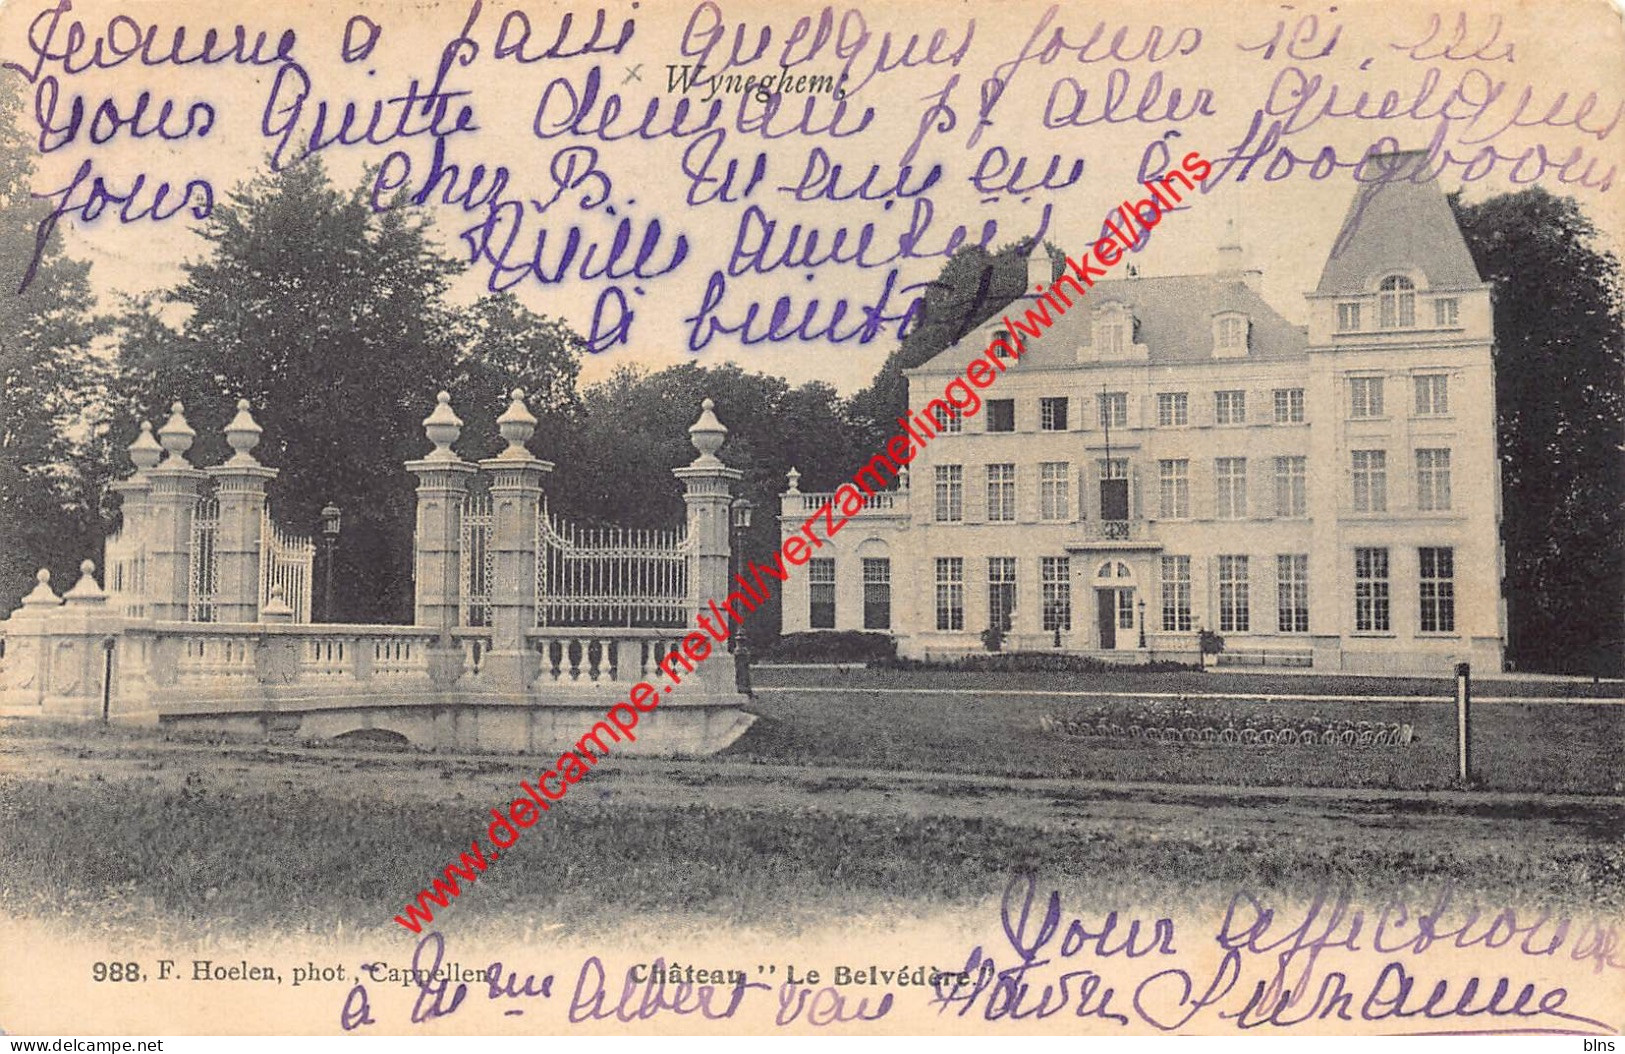 Jeanne a passé quelques jours ici, elle
× Wyneghem;
nous quitte demain pr aller quelques
jours chez B. Maman à Hoogboom
Mille amitiés et
à bientôt
www.delcampe.net/nl/verzamelingen/winkel/blns
Your affectionate
988, F. Hoelen, phot., Cappellen. Château "Le Belvédère."
à Mme Albert van Havre Suzanne
www.delcampe.net
blns